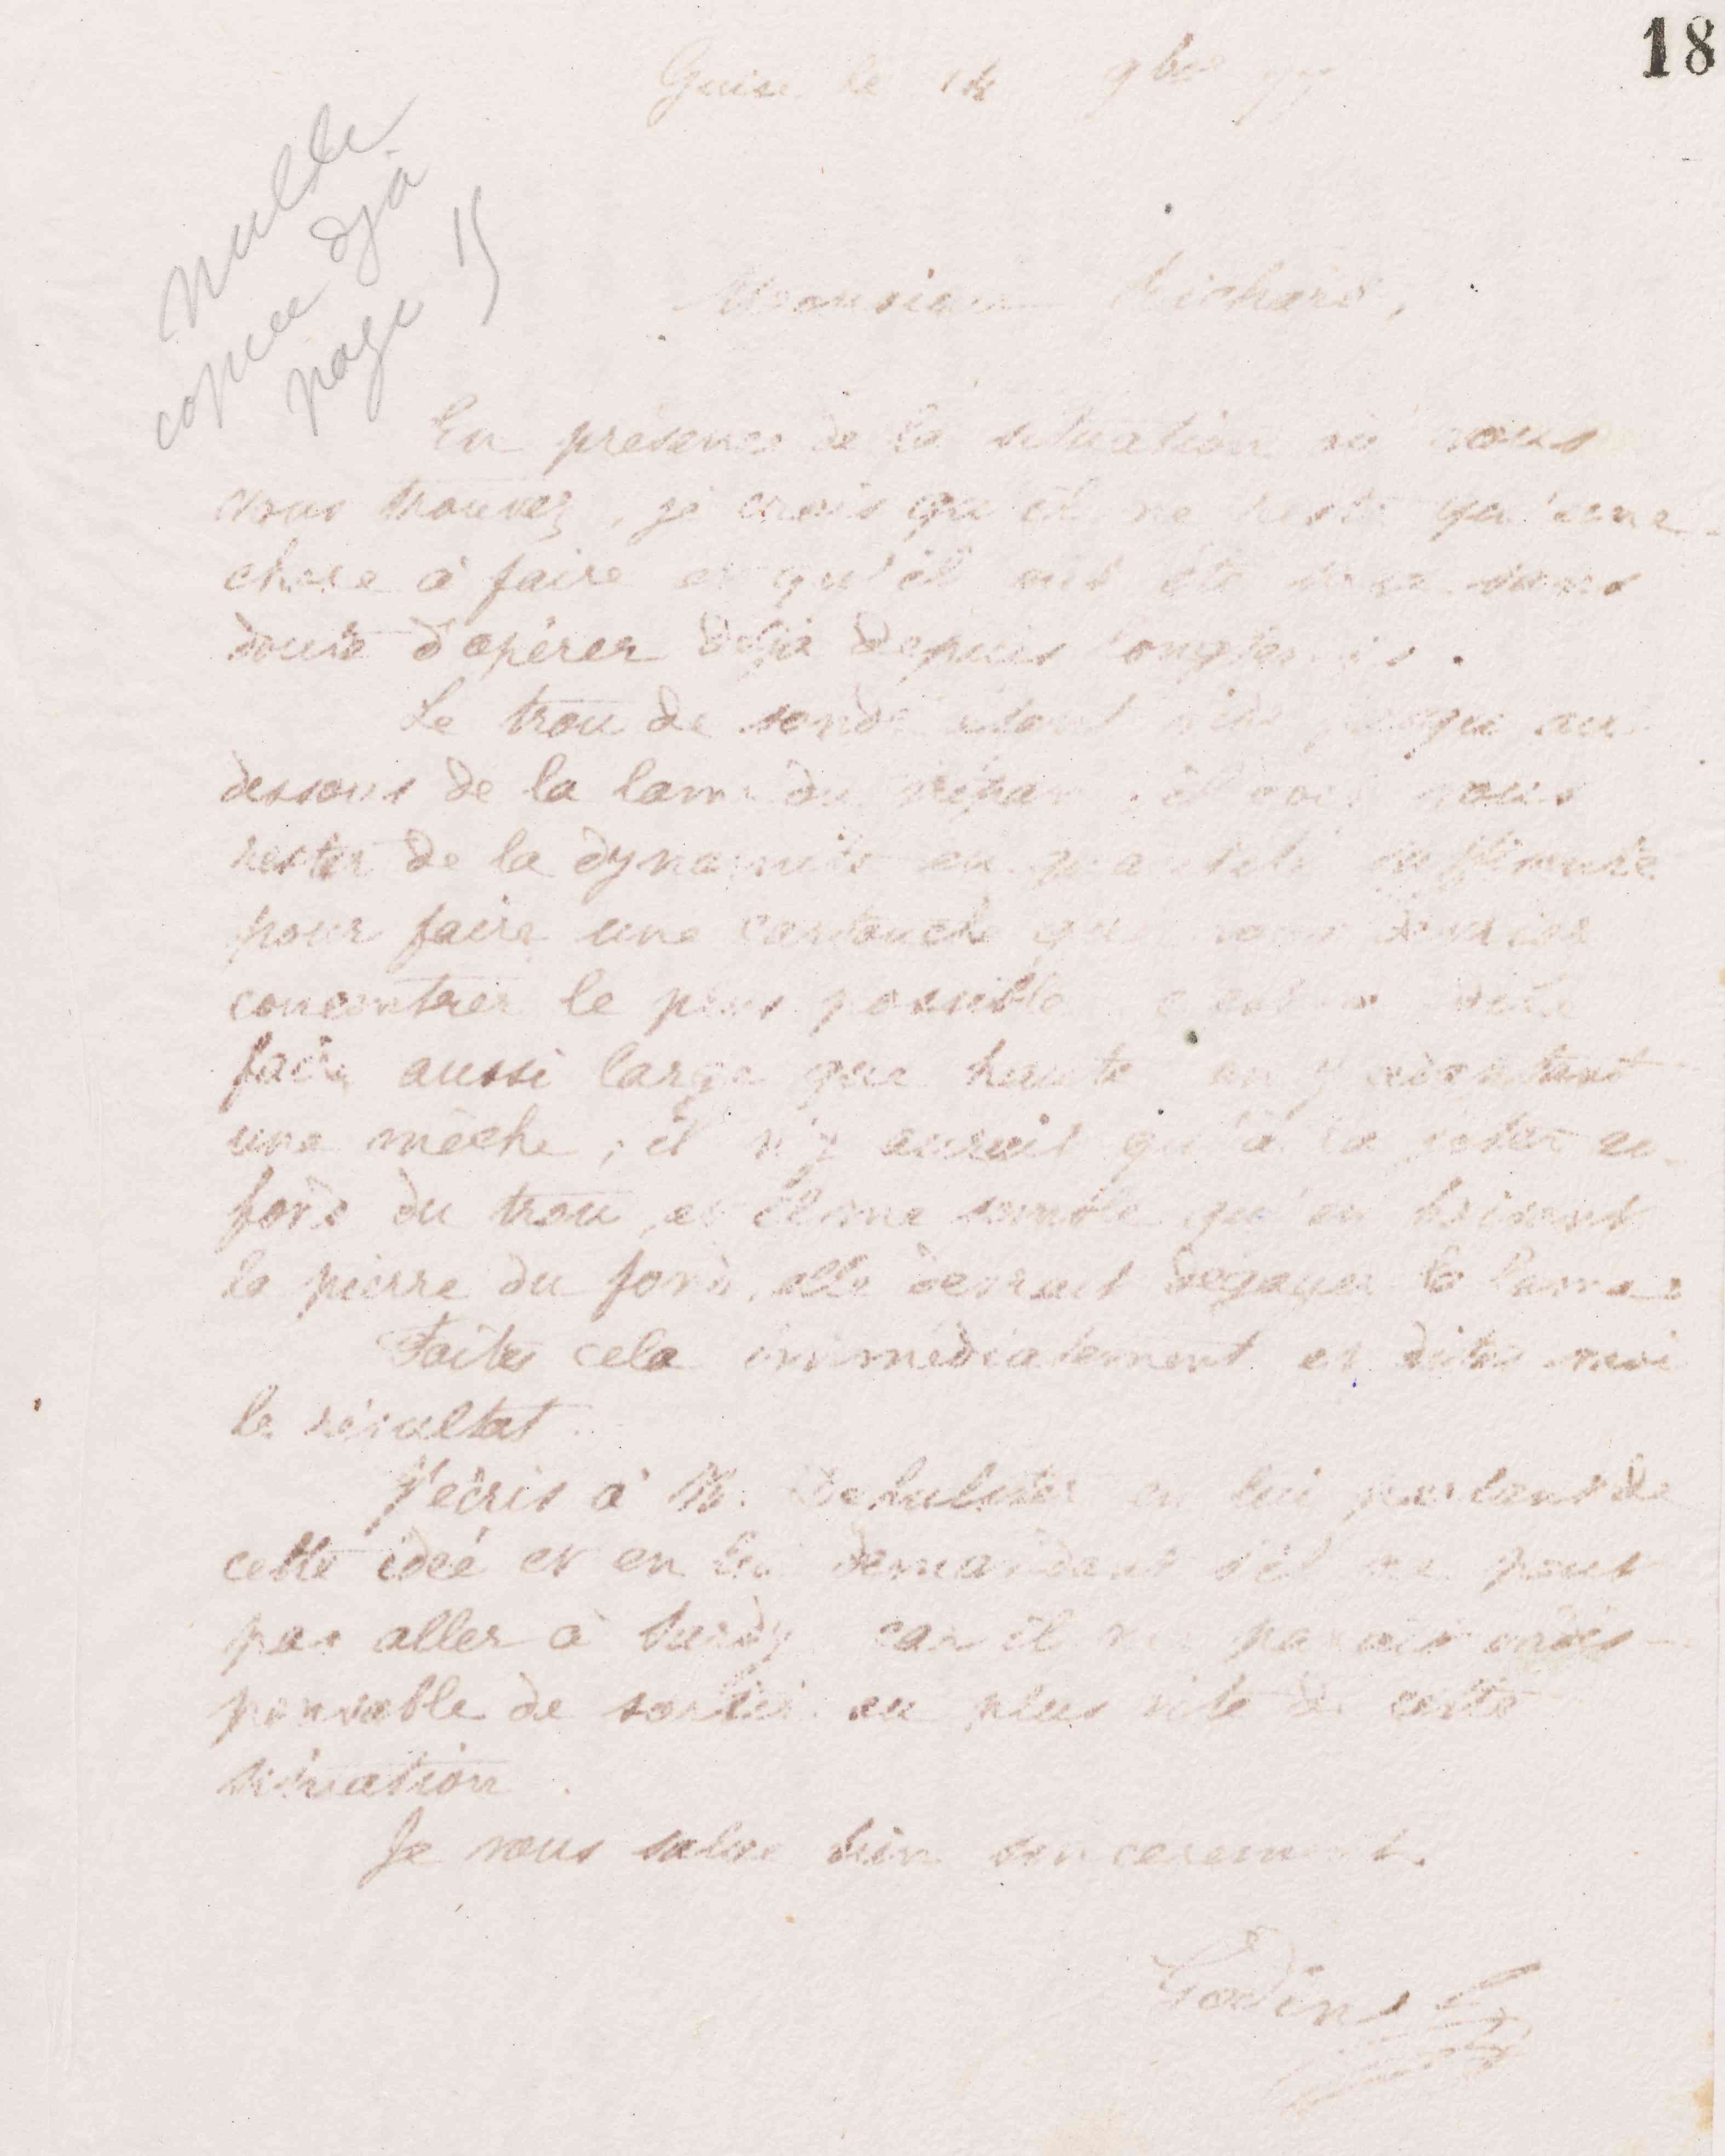 18
Guise le 14 9bre 77
nulle
copiée djà
page 15
Monsieur Richard,
En présence de la situation où vous
vous trouvez, je crois qu'il ne reste qu'une
chose à faire et qu'il eut été sans
doute d'opérer déjà depuis longtemps.
Le trou de sonde étant vide jusque au
dessous de la lame du trépan, il doit vous
rester de la dynamite en quantité suffisante
pour faire une cartouche que vous devriez
concentrer le plus possible c'est à dire
faire aussi large que haute en y adaptant
une mèche, il n'y aurait qu'à la jeter au
fond du trou, et il me semble qu'en brisant
la pierre du fond, elle devrait dégager la lame.
Faites cela immédiatement et dites moi
le résultat.
J'écris à M. en lui parlant de
cette idée et en lui demandant s'il ne peut
pas aller à car il me parait indis-
pensable de sortir au plus vite de cette
situation.
Je vous salue bien sincèrement.
Godin